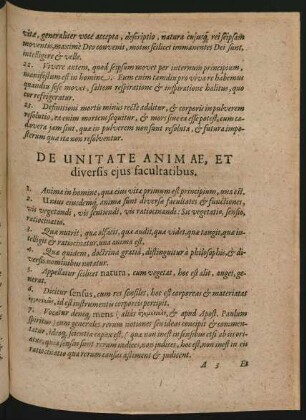 vitæ, generaliter voce accepta, descriptio, natura cujusq; rei seipsam
moventis, maximè Deo convenit, motus scilicet immanentes Dei sunt,
intelligere & velle.
22. Vivere autem, quod seipsum movet per internum principium,
manifestum est in homine. Eum enim tamdiu pro vivere habemus
quandiu sese movet, saltem respiratione & inspiratione halitus, quo
cor refrigeratur.
23. Definitioni mortis minus rectè additur, & corporis in pulverem
resolutio, ea enim mortem sequitur, & mors sine ea esse potest, cum ca-
davera jam sint, quæ in pulverem nen sunt resoluta, & futura imposterum
quæ ita non resolventur.
DE UNITATE ANIMAE, ET
diversis ejus facultatibus.
1. Anima in homine, quæ ejus vitæ primum est principium, una est.
2. Unius ejusdemq; animæ sunt diversæ facultates & functiones,
vis vegetandi, vis sentiendi, vis ratiocinandi: Sic vegetatio, sensio,
ratiocinatio.
3. Quæ nutrit, quæ olfacit, quæ audit, quæ videt, quæ tangit, quæ in-
telligit & ratiocinatur, una anima est.
4. Quæ quidem, doctrinæ gratiâ, distinguitur à philosophis, & di-
versis nominibus notatur.
5. Appellatur scilicet natura, cum vegetat, hoc est alit, auget, ge-
nerat.
6. Dicitur sensus, cum res sensiles, hoc est corporeas & materiatas
id est instrumentis corporis percipit.
7. Vocatur deniq; mens & apud Apost. Paulum
spiritus) cum generales rerum notiones seu ideas concipit & commen-
tatur, ideoq; scientia expers est,
A 3 Et